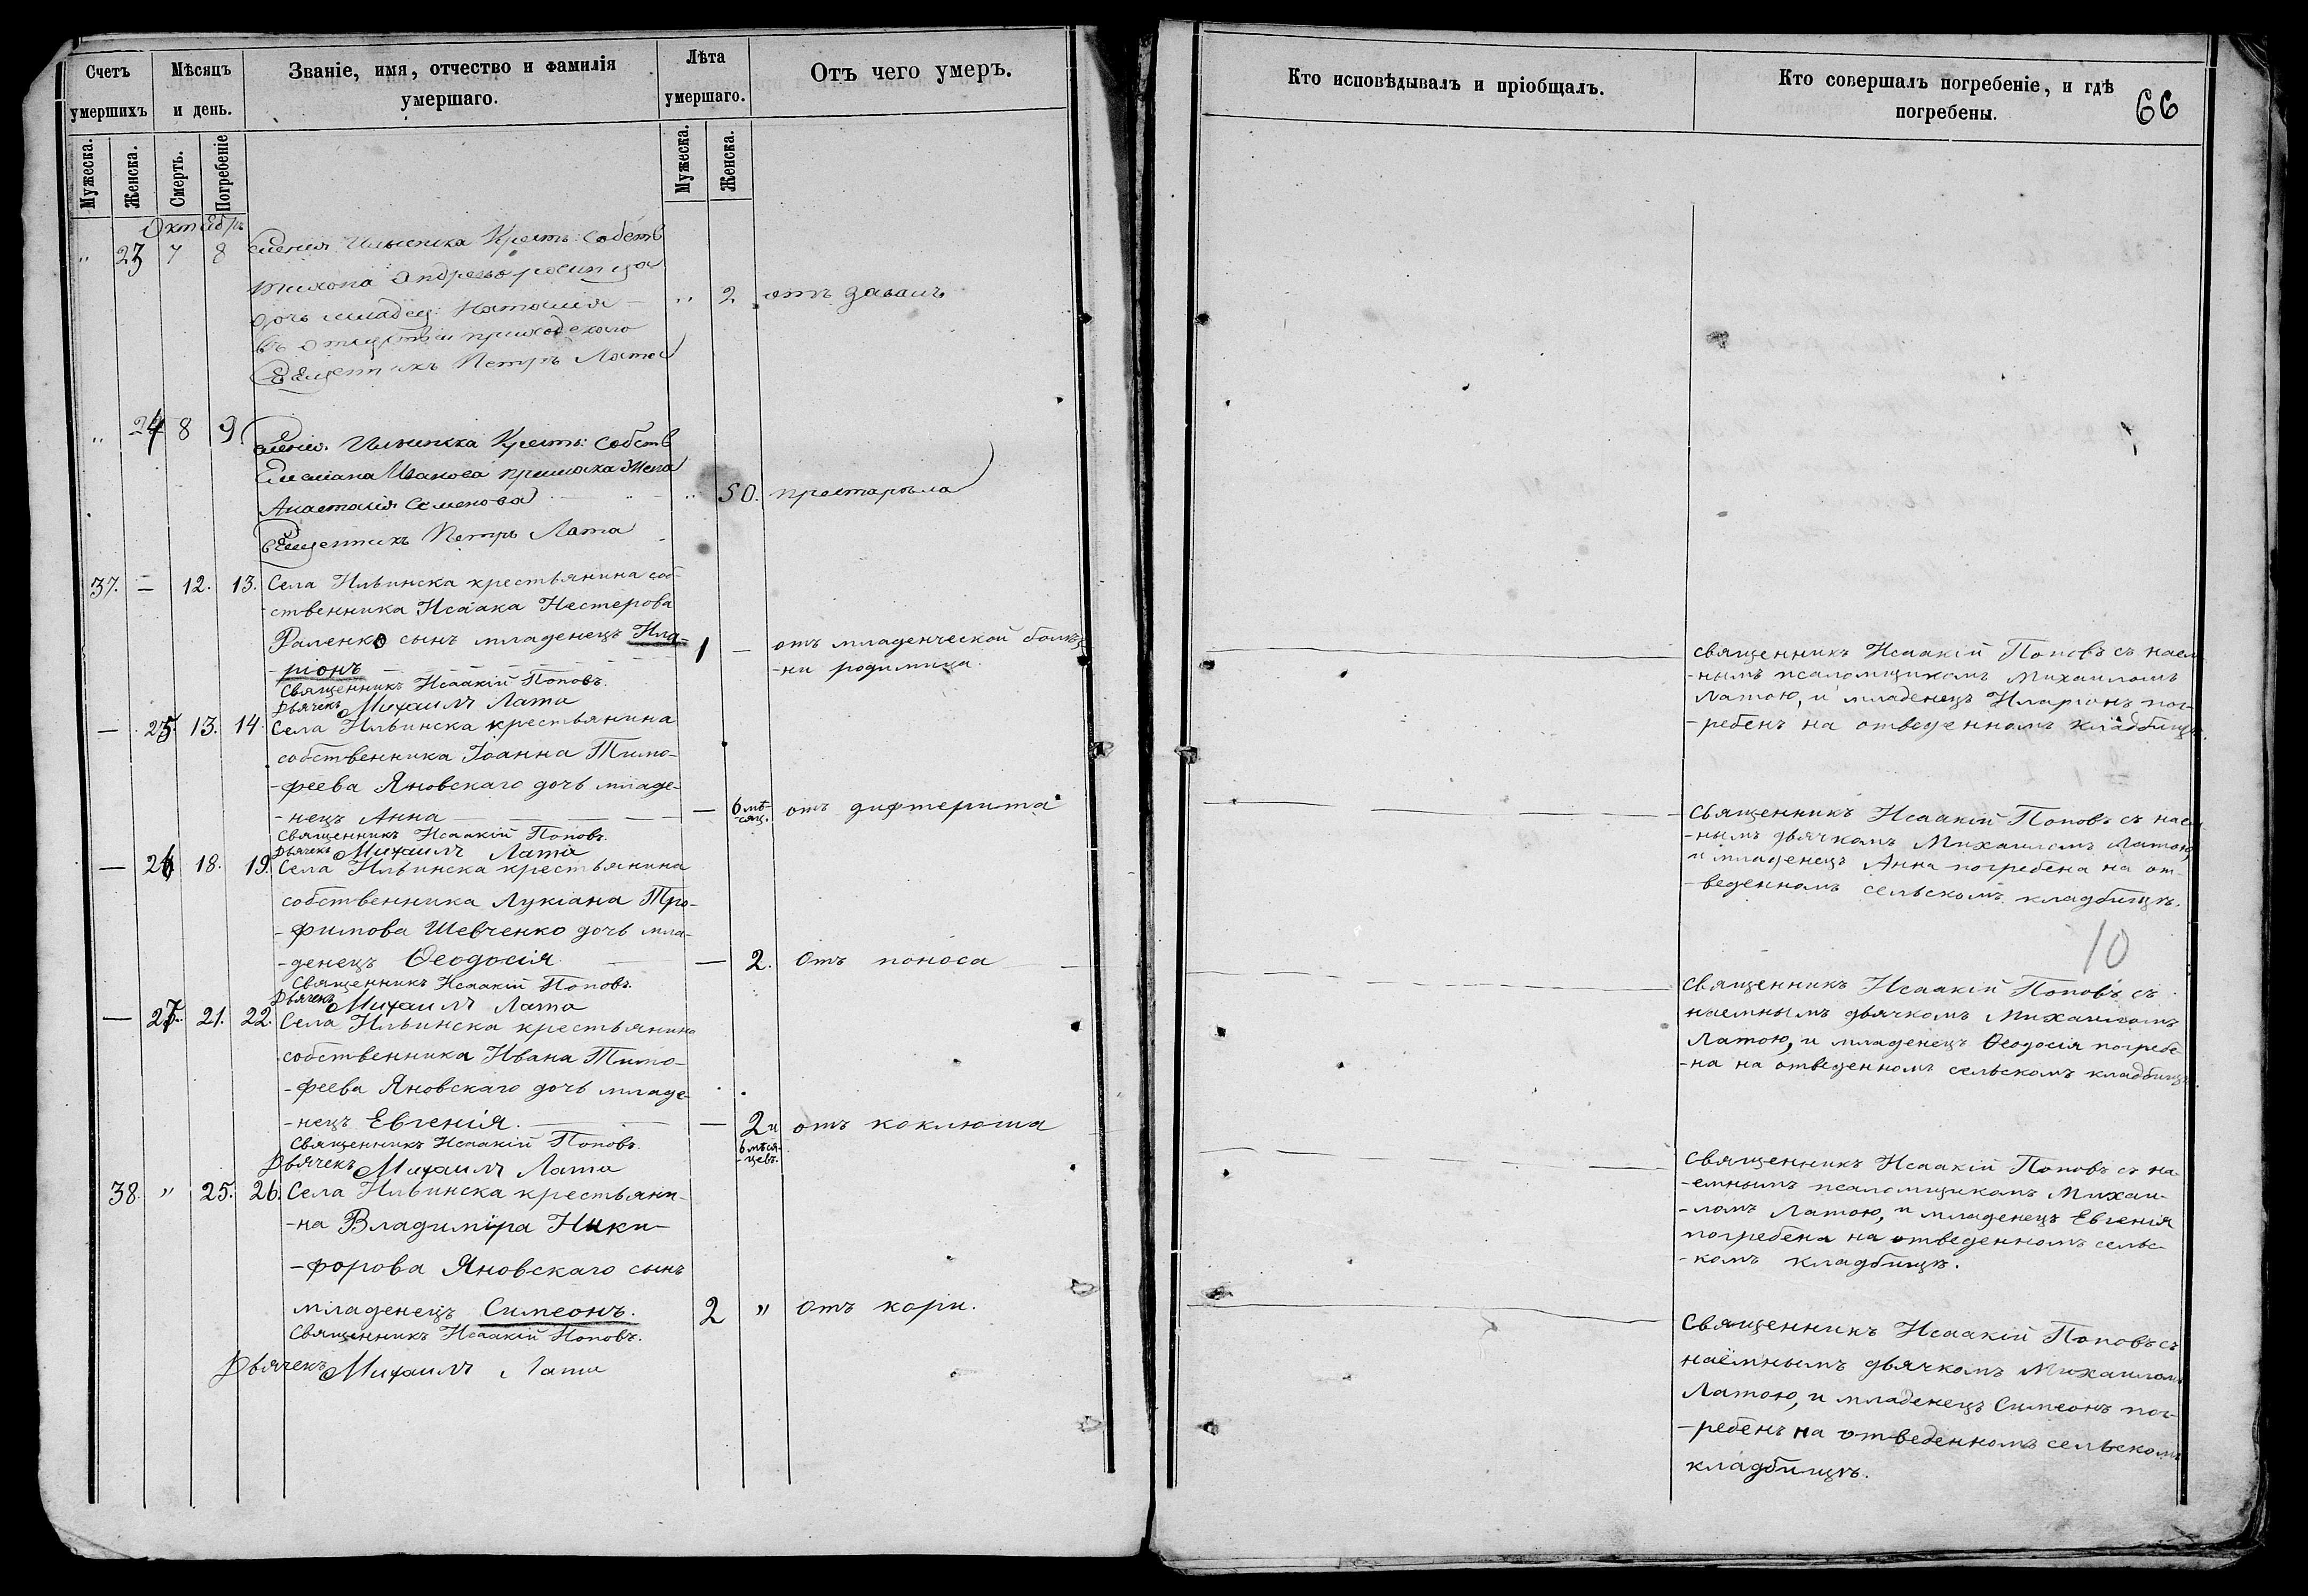 Счетъ умершихъ
Мѣсяцъ и день.
Званіе, имя, отчество и фамилія умершаго.
Лѣта умершаго.
Отъ чего умеръ.
Мужеска.
Женска.
Смерть.
Погребеніе
Мужеска.
Женска.
Октябрь
" 23 7 8 Ильинска Крест: Собств
Тихона Андреева
дочь младец: Наталія " 2 отъ завалъ
въ отсуствіи приходскаго
Священникъ Петръ Лата
" 24 8 9 Ильинска Крест: Собств
Емелiана Иванова жена
Анастасія Семенова " 50. престарѣла
Священникъ Петръ Лата
37. – 12. 13. Села Ильинска крестьянина соб-
-ственника Исаака Нестерова
Фаленко сынъ младенецъ Ила- 1 — отъ младенческой болѣз
-ріонъ -ни родимица.
Священникъ Исаакій Поповъ.
Дьячекъ Михаилъ Лата
— 25. 13. 14. Села Ильинска крестьянина
собственника Іоанна Тимо-
-феева Яновскаго дочь младе-
-нецъ Анна — 6 мѣ-сяц. отъ дифтерита
Священникъ Исаакій Поповъ.
Дьячекъ Михаилъ Лата
— 26 18. 19. Села Ильинска крестьянина
собственника Лукіана Тро-
-фимова Шевченко дочь мла-
-денецъ Ѳеодосія — 2. Отъ поноса
Священникъ Исаакій Поповъ.
Дьячекъ Михаилъ Лата
— 27. 21. 22. Села Ильинска крестьянина
собственника Ивана Тимо-
-феева Яновскаго дочь младе-
-нецъ Евгенія. — 2 и 6 мѣся-цевъ. отъ коклюша
Священникъ Исаакій Поповъ.
Дьячекъ Михаилъ Лата
38. " 25. 26. Села Ильинска крестьяни-
-на Владиміра Ники-
-форова Яновскаго сынъ
младенецъ Симеонъ. 2 " Отъ кори.
Священникъ Исаакій Поповъ.
Дьячекъ Михаилъ Лата
Кто исповѣдывалъ и пріобщалъ.
Кто совершалъ погребеніе, и гдѣ погребены.
66
Священникъ Исаакій Поповъ съ наем
-нымъ псаломщикомъ Михаиломъ
Латою, и младенецъ Иларіонъ пог-
-ребенъ на отведенномъ кладбищѣ.
Священникъ Исаакій Поповъ съ наем
-нымъ дьячкомъ Михаиломъ Латою,
и младенецъ Анна погребена на от-
-веденномъ сельскомъ кладбищѣ.
10
Священникъ Исаакій Поповъ съ
наемнымъ дьячкомъ Михаиломъ
Латою, и младенецъ Ѳеодосія погребе-
-на на отведенномъ сельскомъ кладбищѣ.
Священникъ Исаакій Поповъ съ на-
-емнымъ псаломщикомъ Михаи-
-ломъ Латою, и младенецъ Евгенія
погребена на отведенномъ сельс-
-комъ кладбищѣ.
Священникъ Исаакій Поповъ съ
наёмнымъ дьячкомъ Михаиломъ
Латою, и младенецъ Симеонъ пог-
-ребенъ на отведенномъ сельскомъ
кладбищѣ.